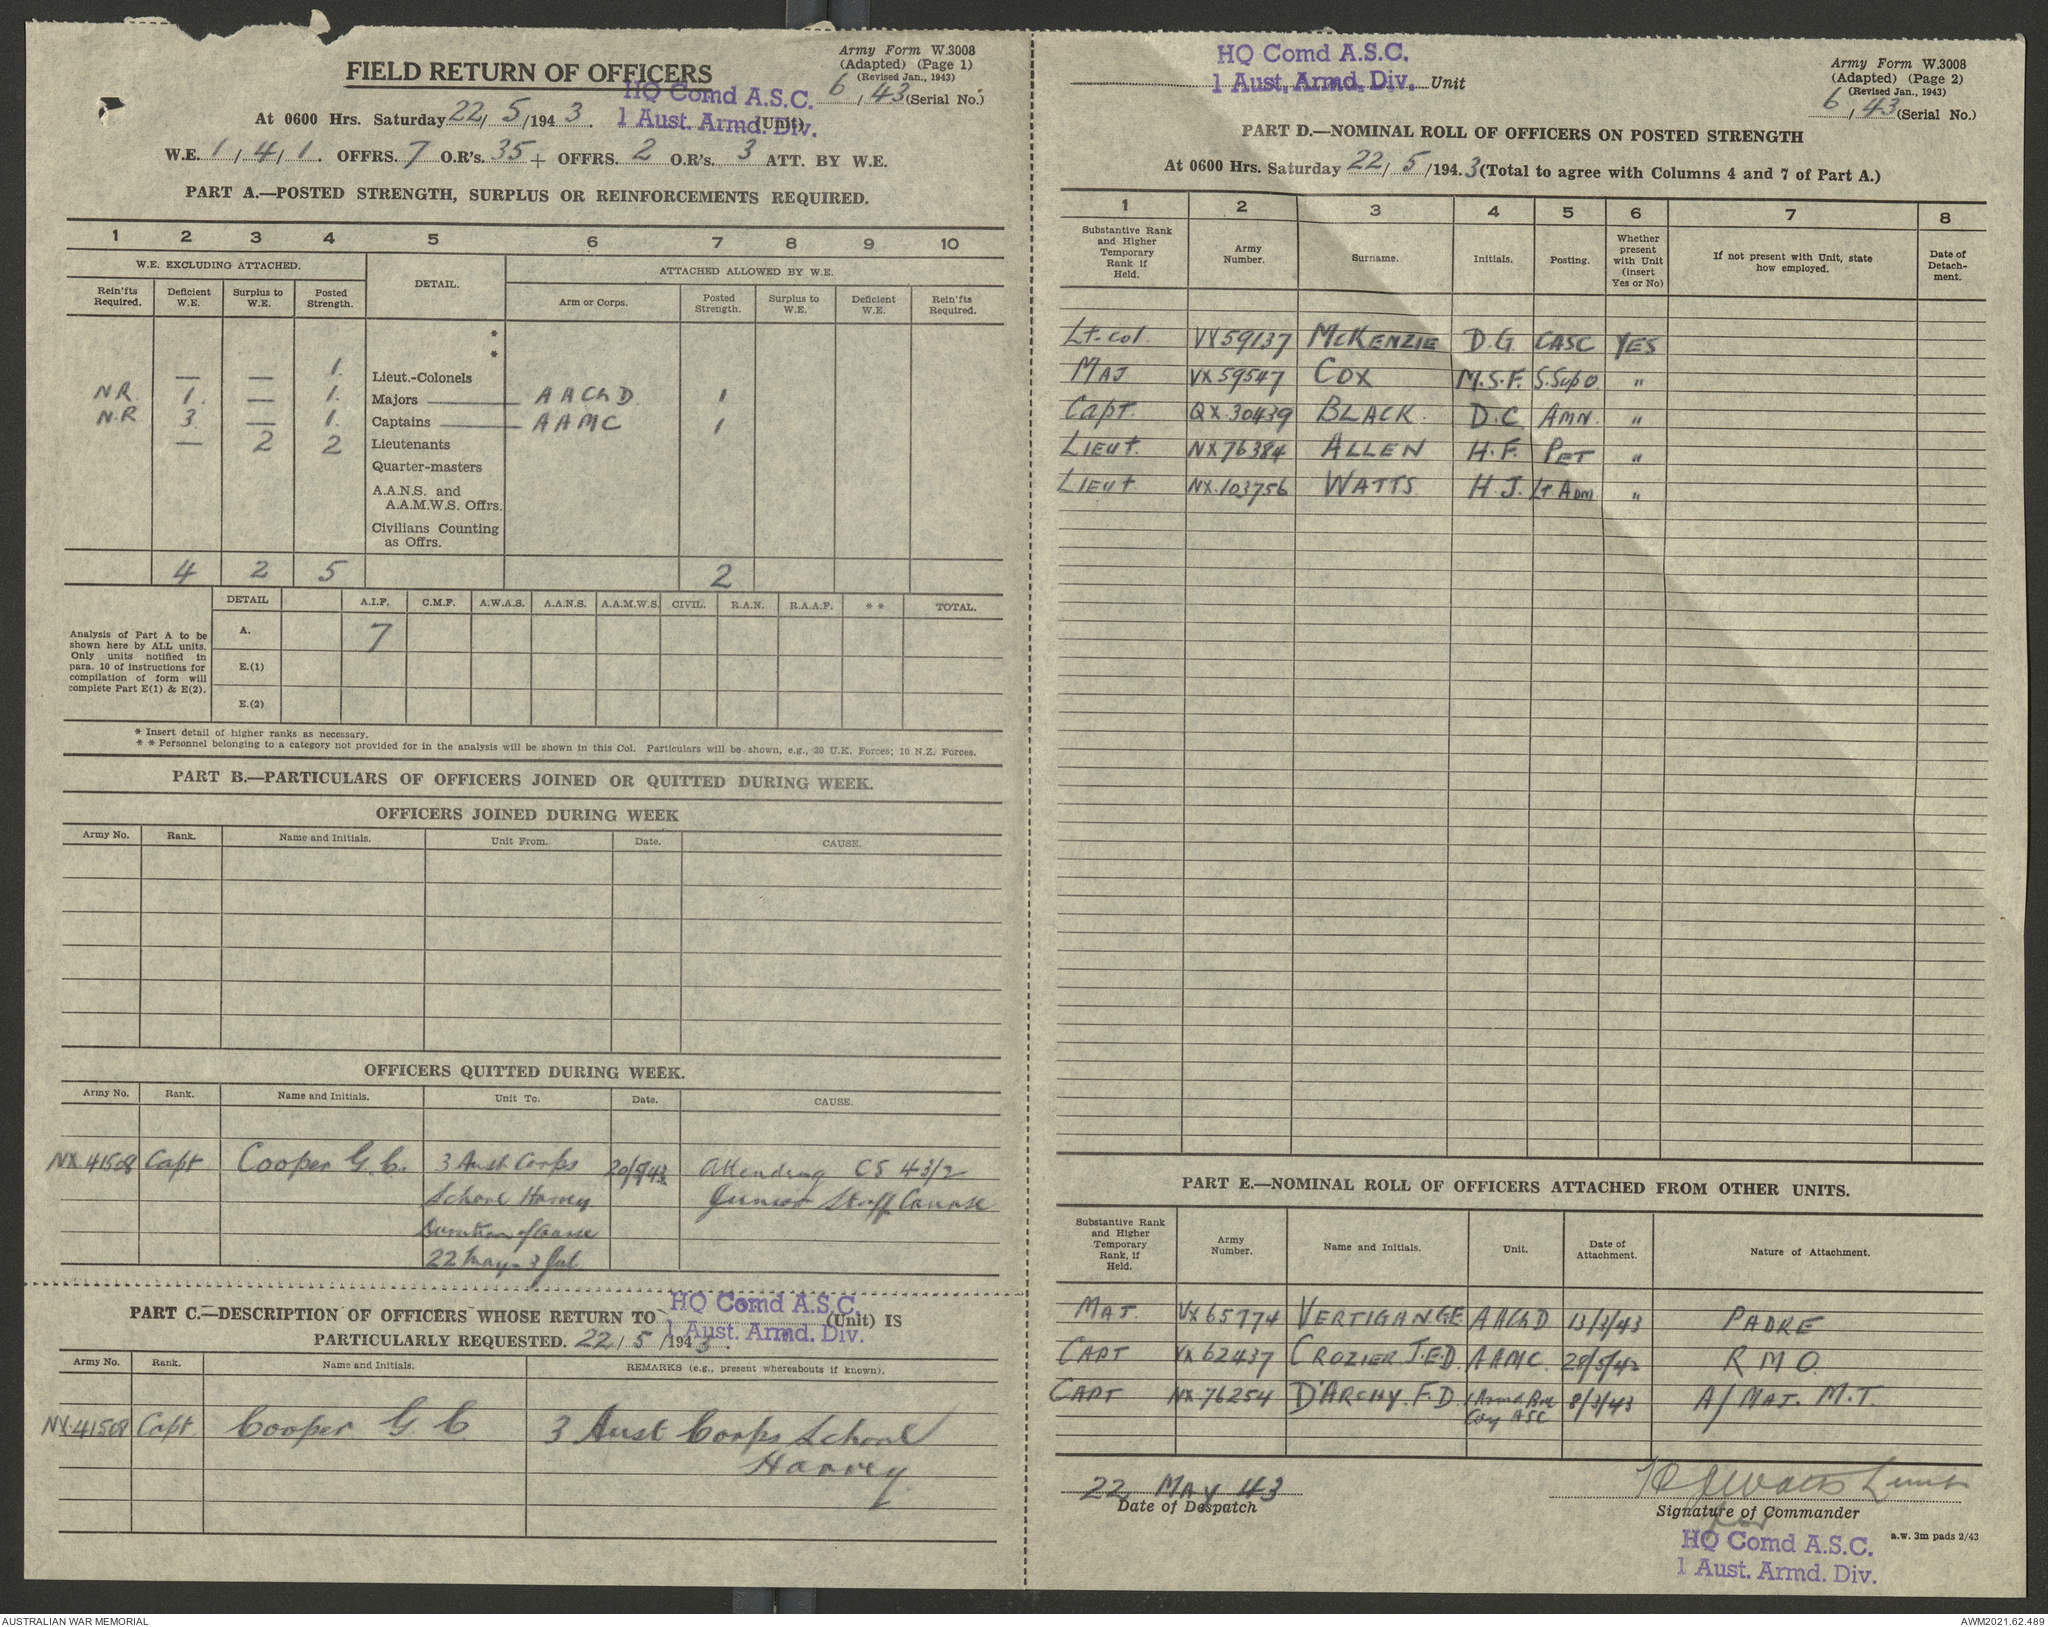 Army Form W.3008
(Adapted) (Page 1)
(Revised Jan., 1943)
FIELD RETURN OF OFFICERS
HQ Comd A.S.C.
1 Aust. Armd. Div.
6, 43 (Serial No.)
At 0600 Hrs. Saturday 22/5/1943. (Unit)
W.E. 1/4/1. OFFRS. 7 O.R's. 35 + OFFRS. 2 O.R's. 3 ATT. BY W.E.
PART A.—POSTED STRENGTH, SURPLUS OR REINFORCEMENTS REQUIRED.
1 2 3 4 5 6 7 8 9 10
W.E. EXCLUDING ATTACHED. DETAIL. ATTACHED ALLOWED BY W.E.
Rein'fts Required. Deficient W.E. Surplus to W.E. Posted Strength. Arm or Corps. Posted Strength. Surplus to W.E. Deficient W.E. Rein'fts Required.
*
*
— — 1. Lieut.-Colonels
NR. 1. — 1. Majors — AAChD 1
N.R 3. — 1. Captains — AAMC 1
— 2 2 Lieutenants
Quarter-masters
A.A.N.S. and
A.A.M.W.S. Offrs.
Civilians Counting
as Offrs.
4 2 5 2
DETAIL A.I.F. C.M.F. A.W.A.S. A.A.N.S. A.A.M.W.S. CIVIL. R.A.N. R.A.A.F. ** TOTAL.
Analysis of Part A to be
shown here by ALL units.
Only units notified in
para. 10 of instructions for
compilation of form will
complete Part E(1) & E(2).
A. 7
E.(1)
E.(2)
* Insert detail of higher ranks as necessary.
* * Personnel belonging to a category not provided for in the analysis will be shown in this Col. Particulars will be shown, e.g., 20 U.K. Forces; 10 N.Z. Forces.
PART B.—PARTICULARS OF OFFICERS JOINED OR QUITTED DURING WEEK.
OFFICERS JOINED DURING WEEK
Army No. Rank. Name and Initials. Unit From. Date. CAUSE.
OFFICERS QUITTED DURING WEEK.
Army No. Rank. Name and Initials. Unit To. Date. CAUSE.
NX 41508 Capt Cooper G.C. 3 Aust Corps 20/5/43 Attending CS 43/2
School Harvey Junior Staff Course
Duration of Course
22 May - 3 Jul
PART C.—DESCRIPTION OF OFFICERS WHOSE RETURN TO HQ Comd A.S.C. (Unit) IS
PARTICULARLY REQUESTED. 22/5/1943. 1 Aust. Armd. Div.
Army No. Rank. Name and Initials. REMARKS (e.g., present whereabouts if known).
NX.41508 Capt. Cooper G C. 3 Aust Corps School
Harvey
HQ Comd A.S.C.
1 Aust. Armd. Div. Unit
Army Form W.3008
(Adapted) (Page 2)
(Revised Jan., 1943)
6, 43 (Serial No.)
PART D.—NOMINAL ROLL OF OFFICERS ON POSTED STRENGTH
At 0600 Hrs. Saturday 22/5/1943 (Total to agree with Columns 4 and 7 of Part A.)
1 2 3 4 5 6 7 8
Substantive Rank and Higher Temporary Rank if Held. Army Number. Surname. Initials. Posting. Whether present with Unit (insert Yes or No) If not present with Unit, state how employed. Date of Detach-ment.
Lt-Col VX59137 McKENZIE D.G CASC YES
MAJ VX59547 COX M.S.F. S.Sup O. "
Capt. QX.30439 BLACK. D.C AMN. "
LIEUT. NX76384 ALLEN H.F. PET "
LIEUT NX.103756 WATTS H.J. Lt Adm. "
PART E.—NOMINAL ROLL OF OFFICERS ATTACHED FROM OTHER UNITS.
Substantive Rank and Higher Temporary Rank, if Held. Army Number. Name and Initials. Unit. Date of Attachment. Nature of Attachment.
MAJ. VX65774 VERTIGAN G.E AAChD 13/3/43 PADRE
CAPT VX62437 CROZIER J.E.D. AAMC. 28/5/42 R M O.
CAPT NX.76254 D'ARCHY. F.D. 1 Armd Bde 8/3/43 A/MAJ. M.T.
Coy ASC
22 MAY 43
Date of Despatch
H J Watts Lieut
Signature of Commander
for
HQ Comd A.S.C.
1 Aust. Armd. Div.
a.w. 3m pads 2/43
AUSTRALIAN WAR MEMORIAL
AWM2021.62.489